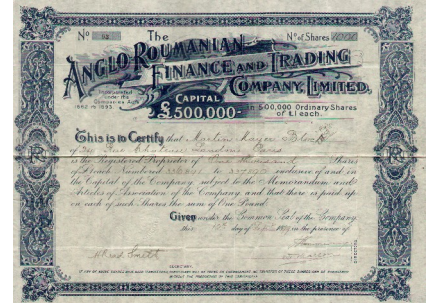 Nº 92
The
Nº of Shares 1000
ANGLO ROUMANIAN
FINANCE AND TRADING
COMPANY, LIMITED.
Incorporated
under the
Companies Acts
1862 to 1893
CAPITAL
£500,000-
in 500,000 Ordinary Shares
of £1 each.
This is to Certify that Martin Mayer
of Paris
is the Registered Proprietor of One Thousand Shares
of £1 each Numbered inclusive of and in
the Capital of the Company subject to the Memorandum and
Articles of Association of the Company, and that there is paid up
on each of such Shares the sum of One Pound
Given under the Common Seal of the Company
this day of in the presence of
Smith
SECRETARY.